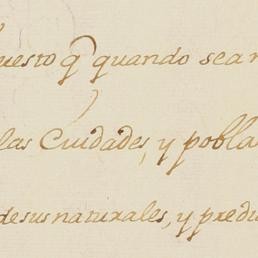 uesto q̃ quando sea
las Cuidades, y pobla
de sus naturales, y predu